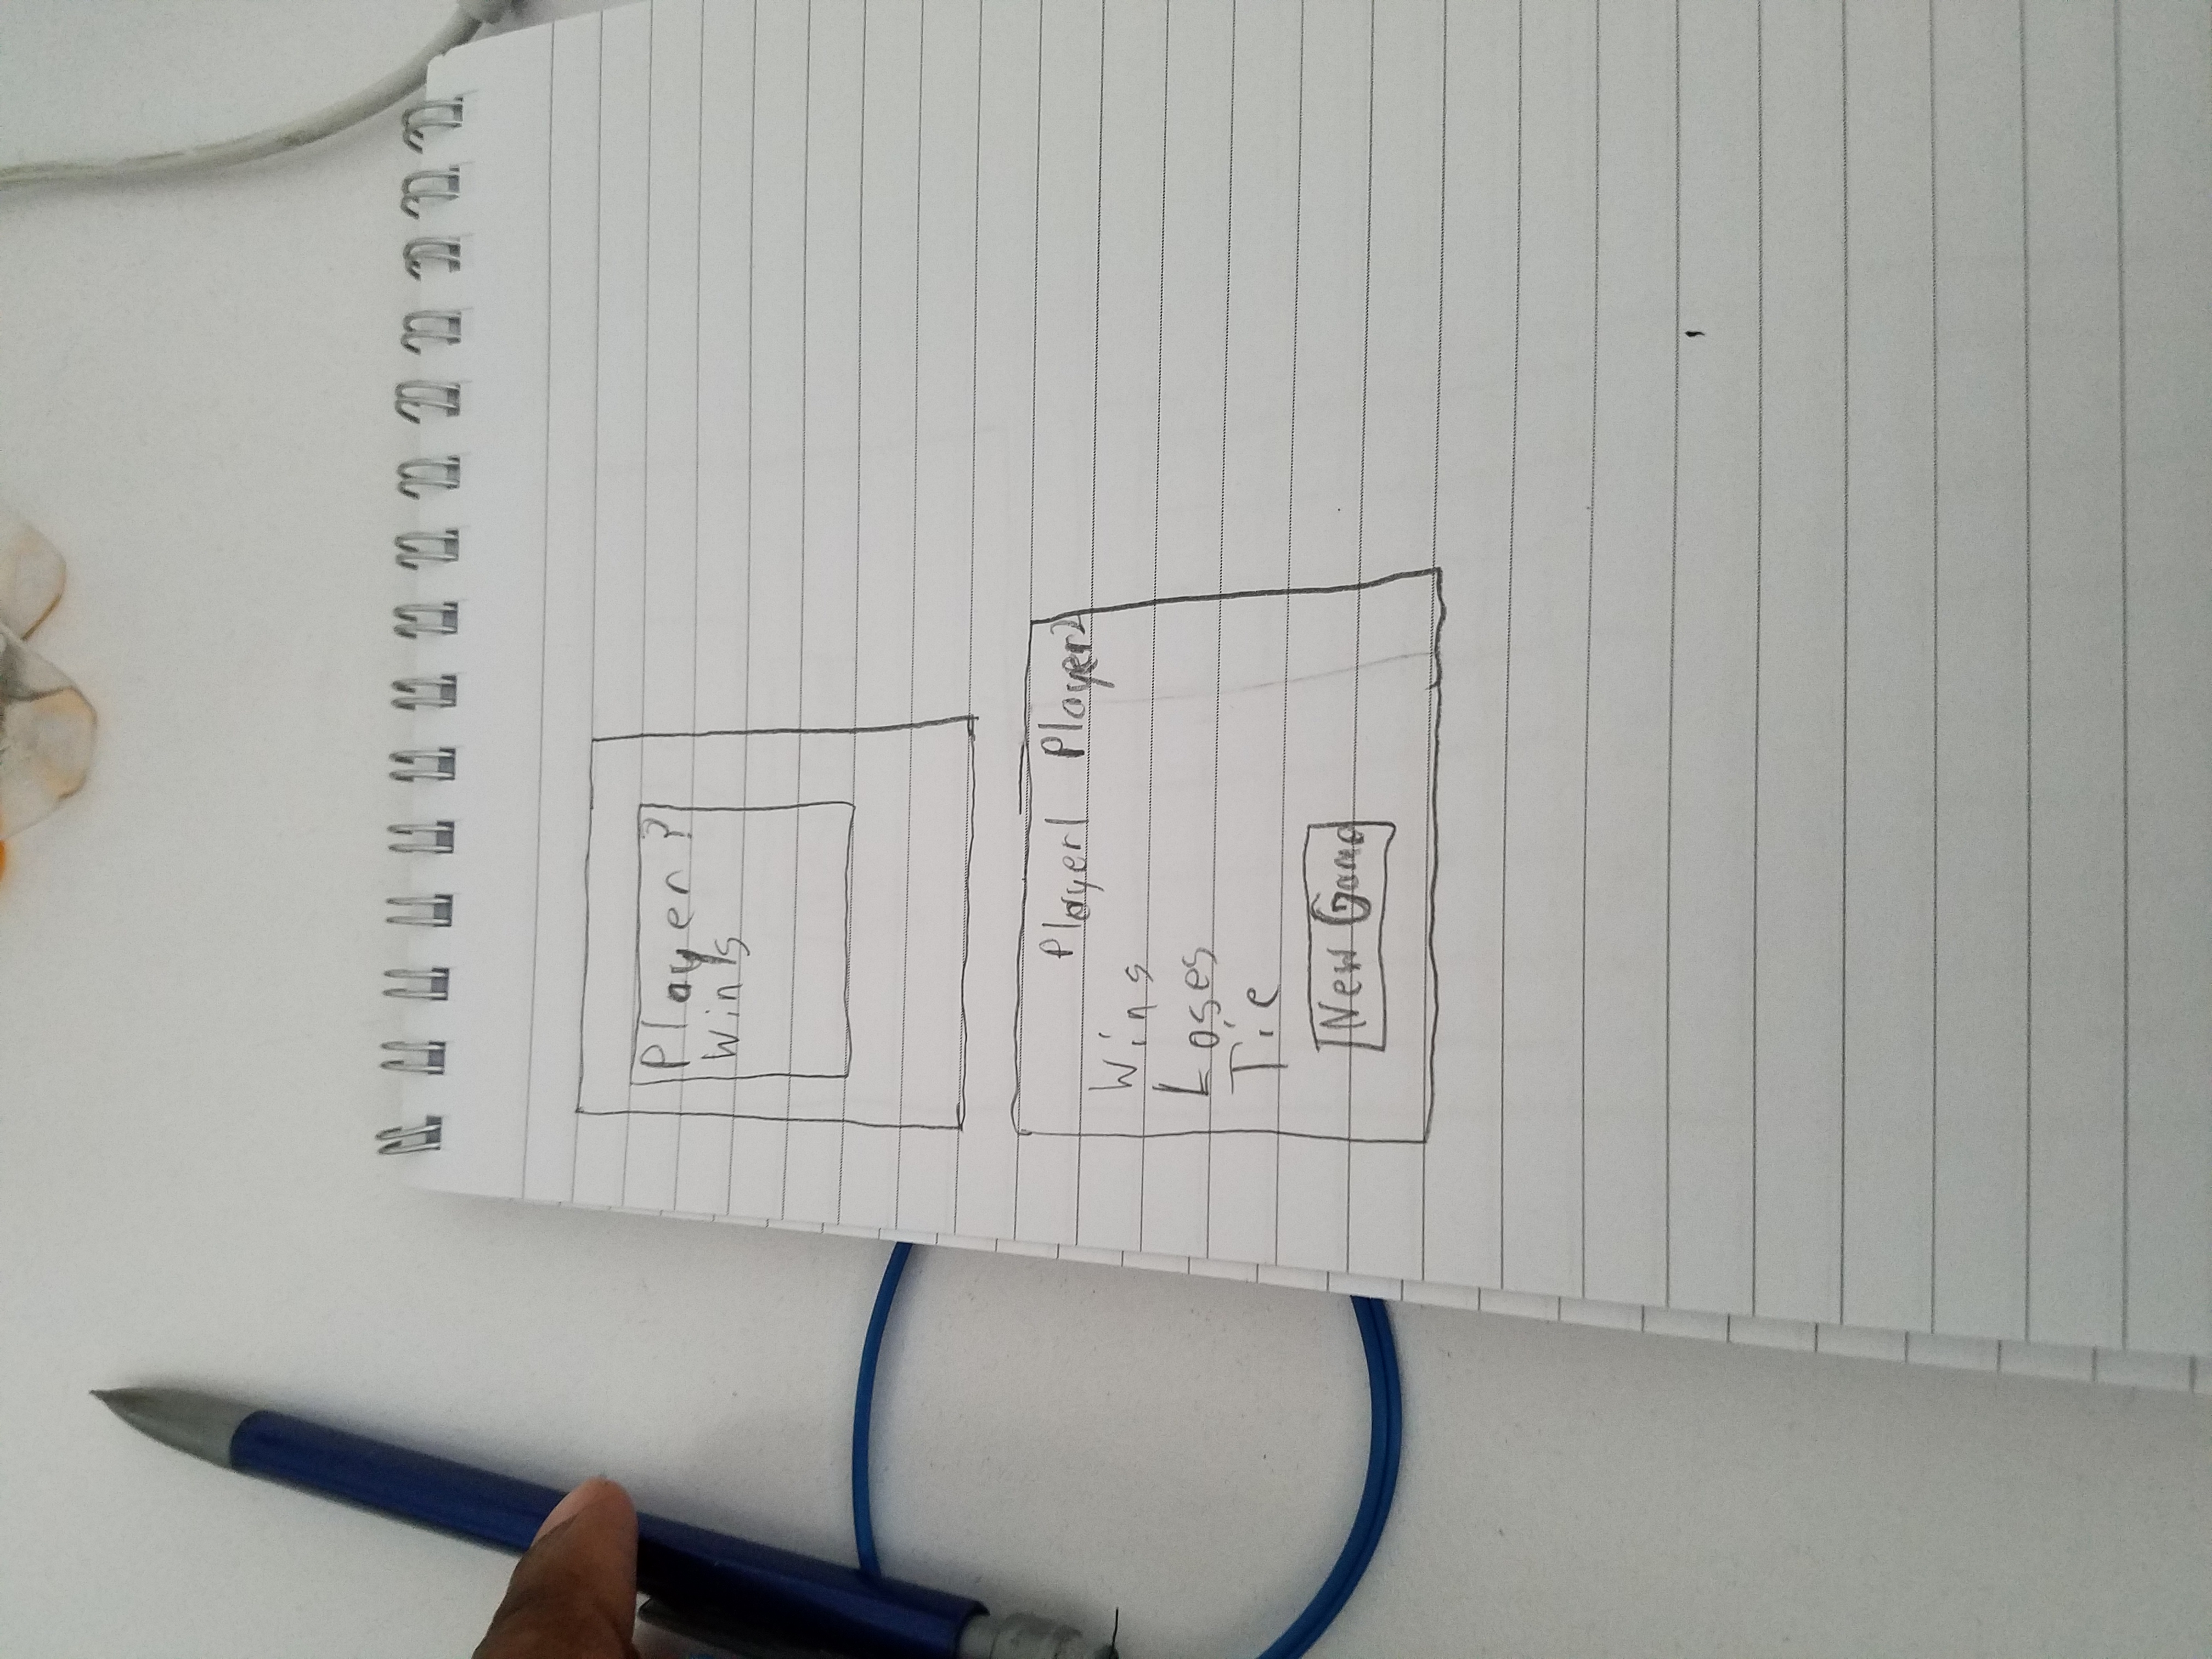 Player ?
Wins
Player1 Player2
Wins
Loses
Tie
New Game